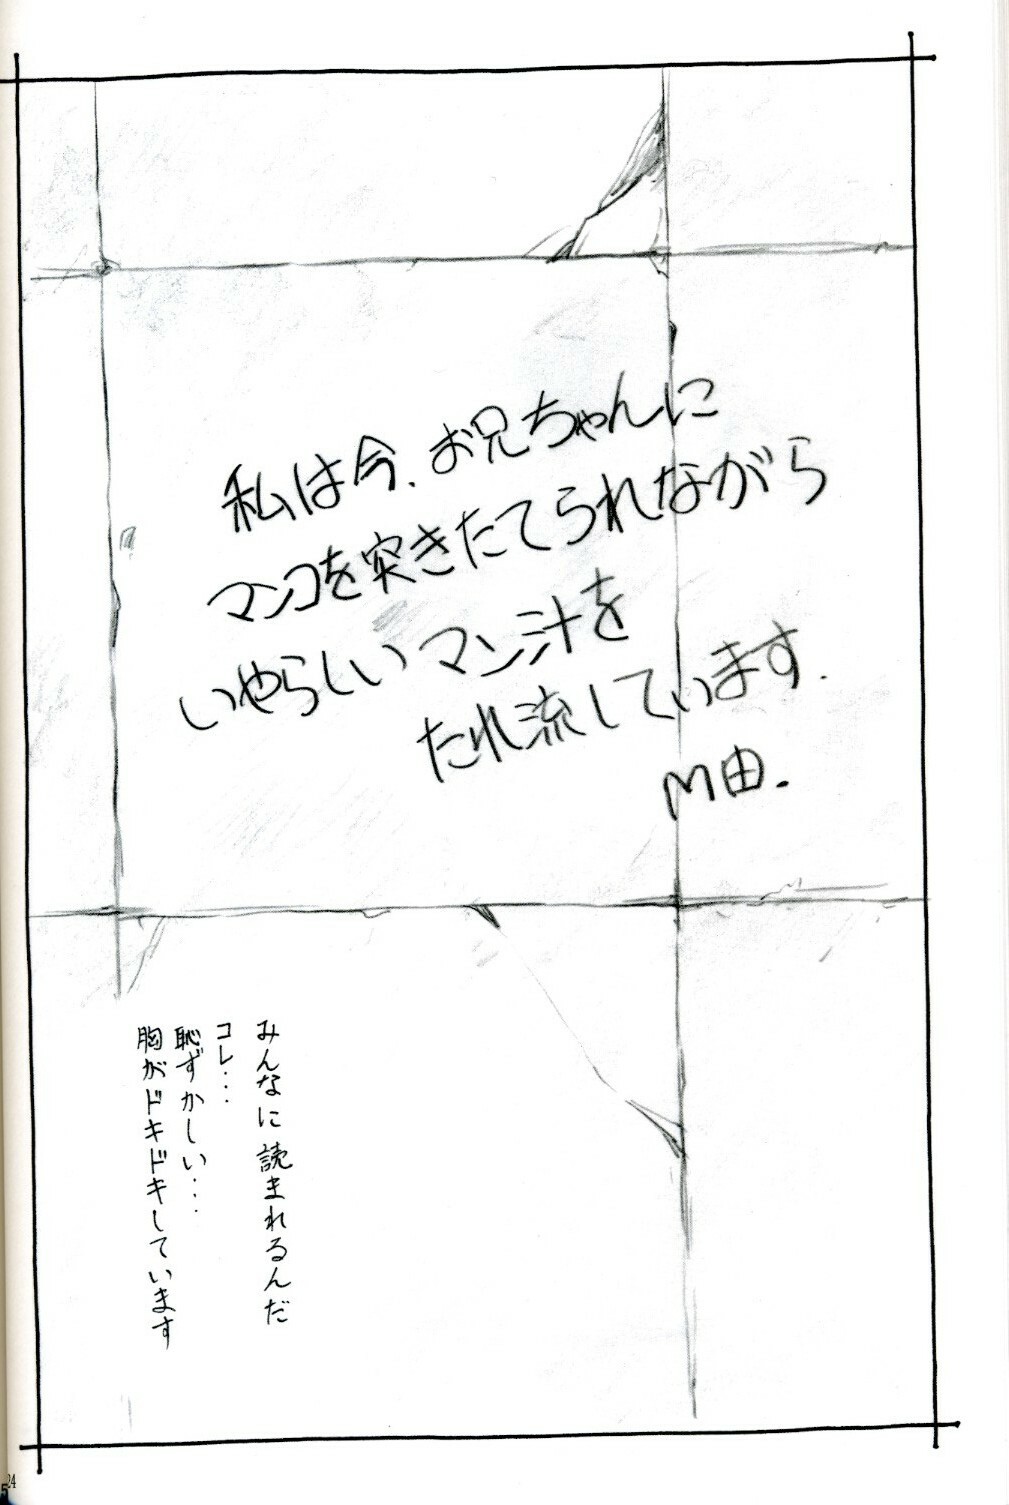 私は今、お兄ちゃんに
マンコを突きたてられながら
いやらしいマン汁を
たれ流しています.
M由.
みんなに読まれるんだ
コレ…
恥ずかしい…
胸がドキドキしています
24